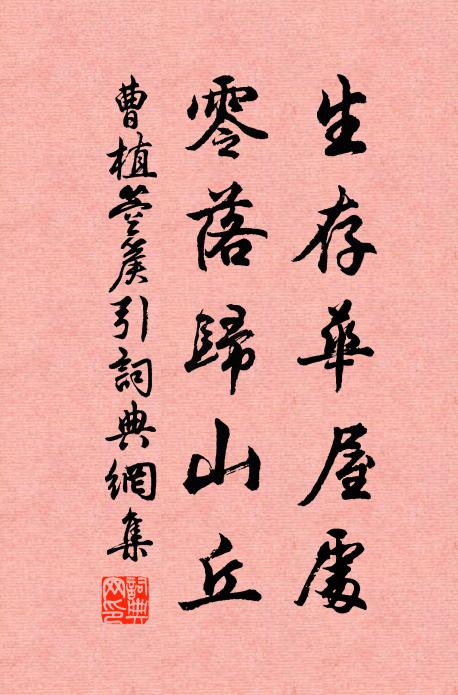 生存華屋處
零落歸山丘
曹植箜篌引詞典網集
詞典網印